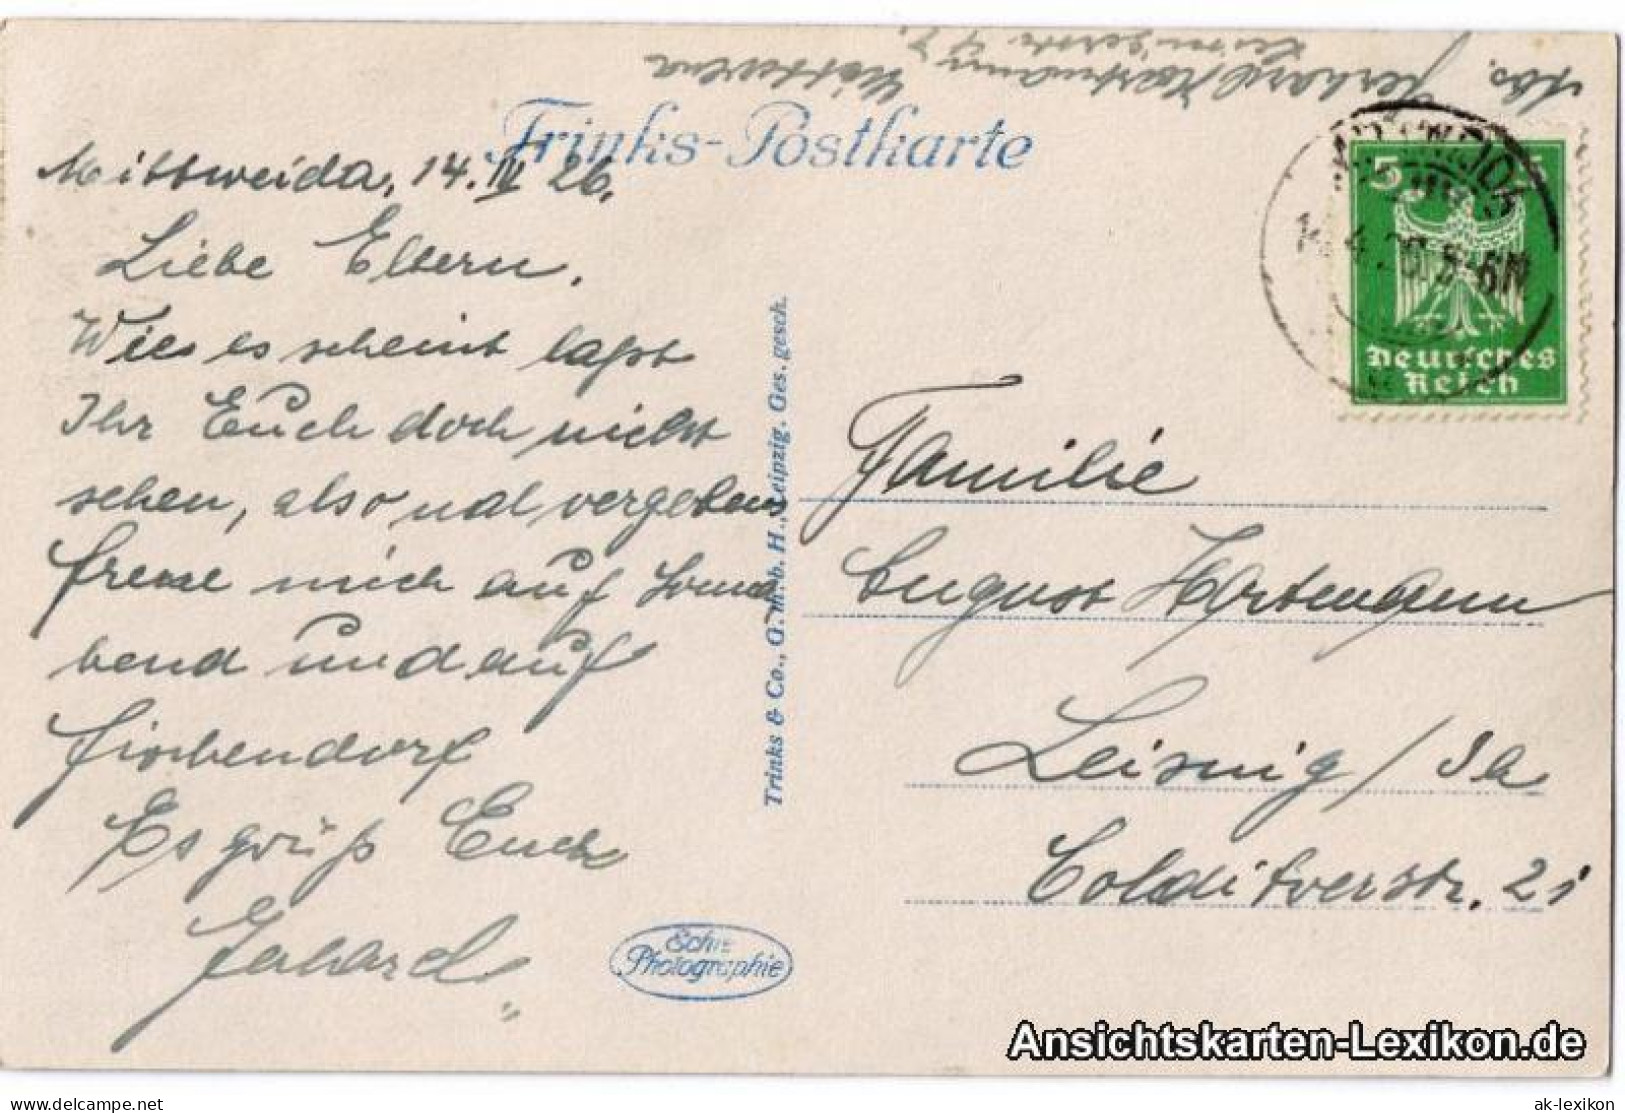 Abs. Gerhard Hartmann
Mittweida
Trinks-Postkarte
Mittweida, 14. IV 26.
Liebe Eltern.
Wies es scheint laßt
Ihr Euch doch nicht
sehen, also
freue mich auf Sonna
bend und auf
Fischendorf
Es grüß Euch
Gerhard
Trinks & Co., G. m. b. H., Leipzig. Ges. gesch.
Echte
Photographie
MITTWEIDA
5-6N
5 5
Deutsches
Reich
Familie
August Hartmann
Leisnig / Sa
Colditzerstr. 21
Ansichtskarten-Lexikon.de
www.delcampe.net
ak-lexikon